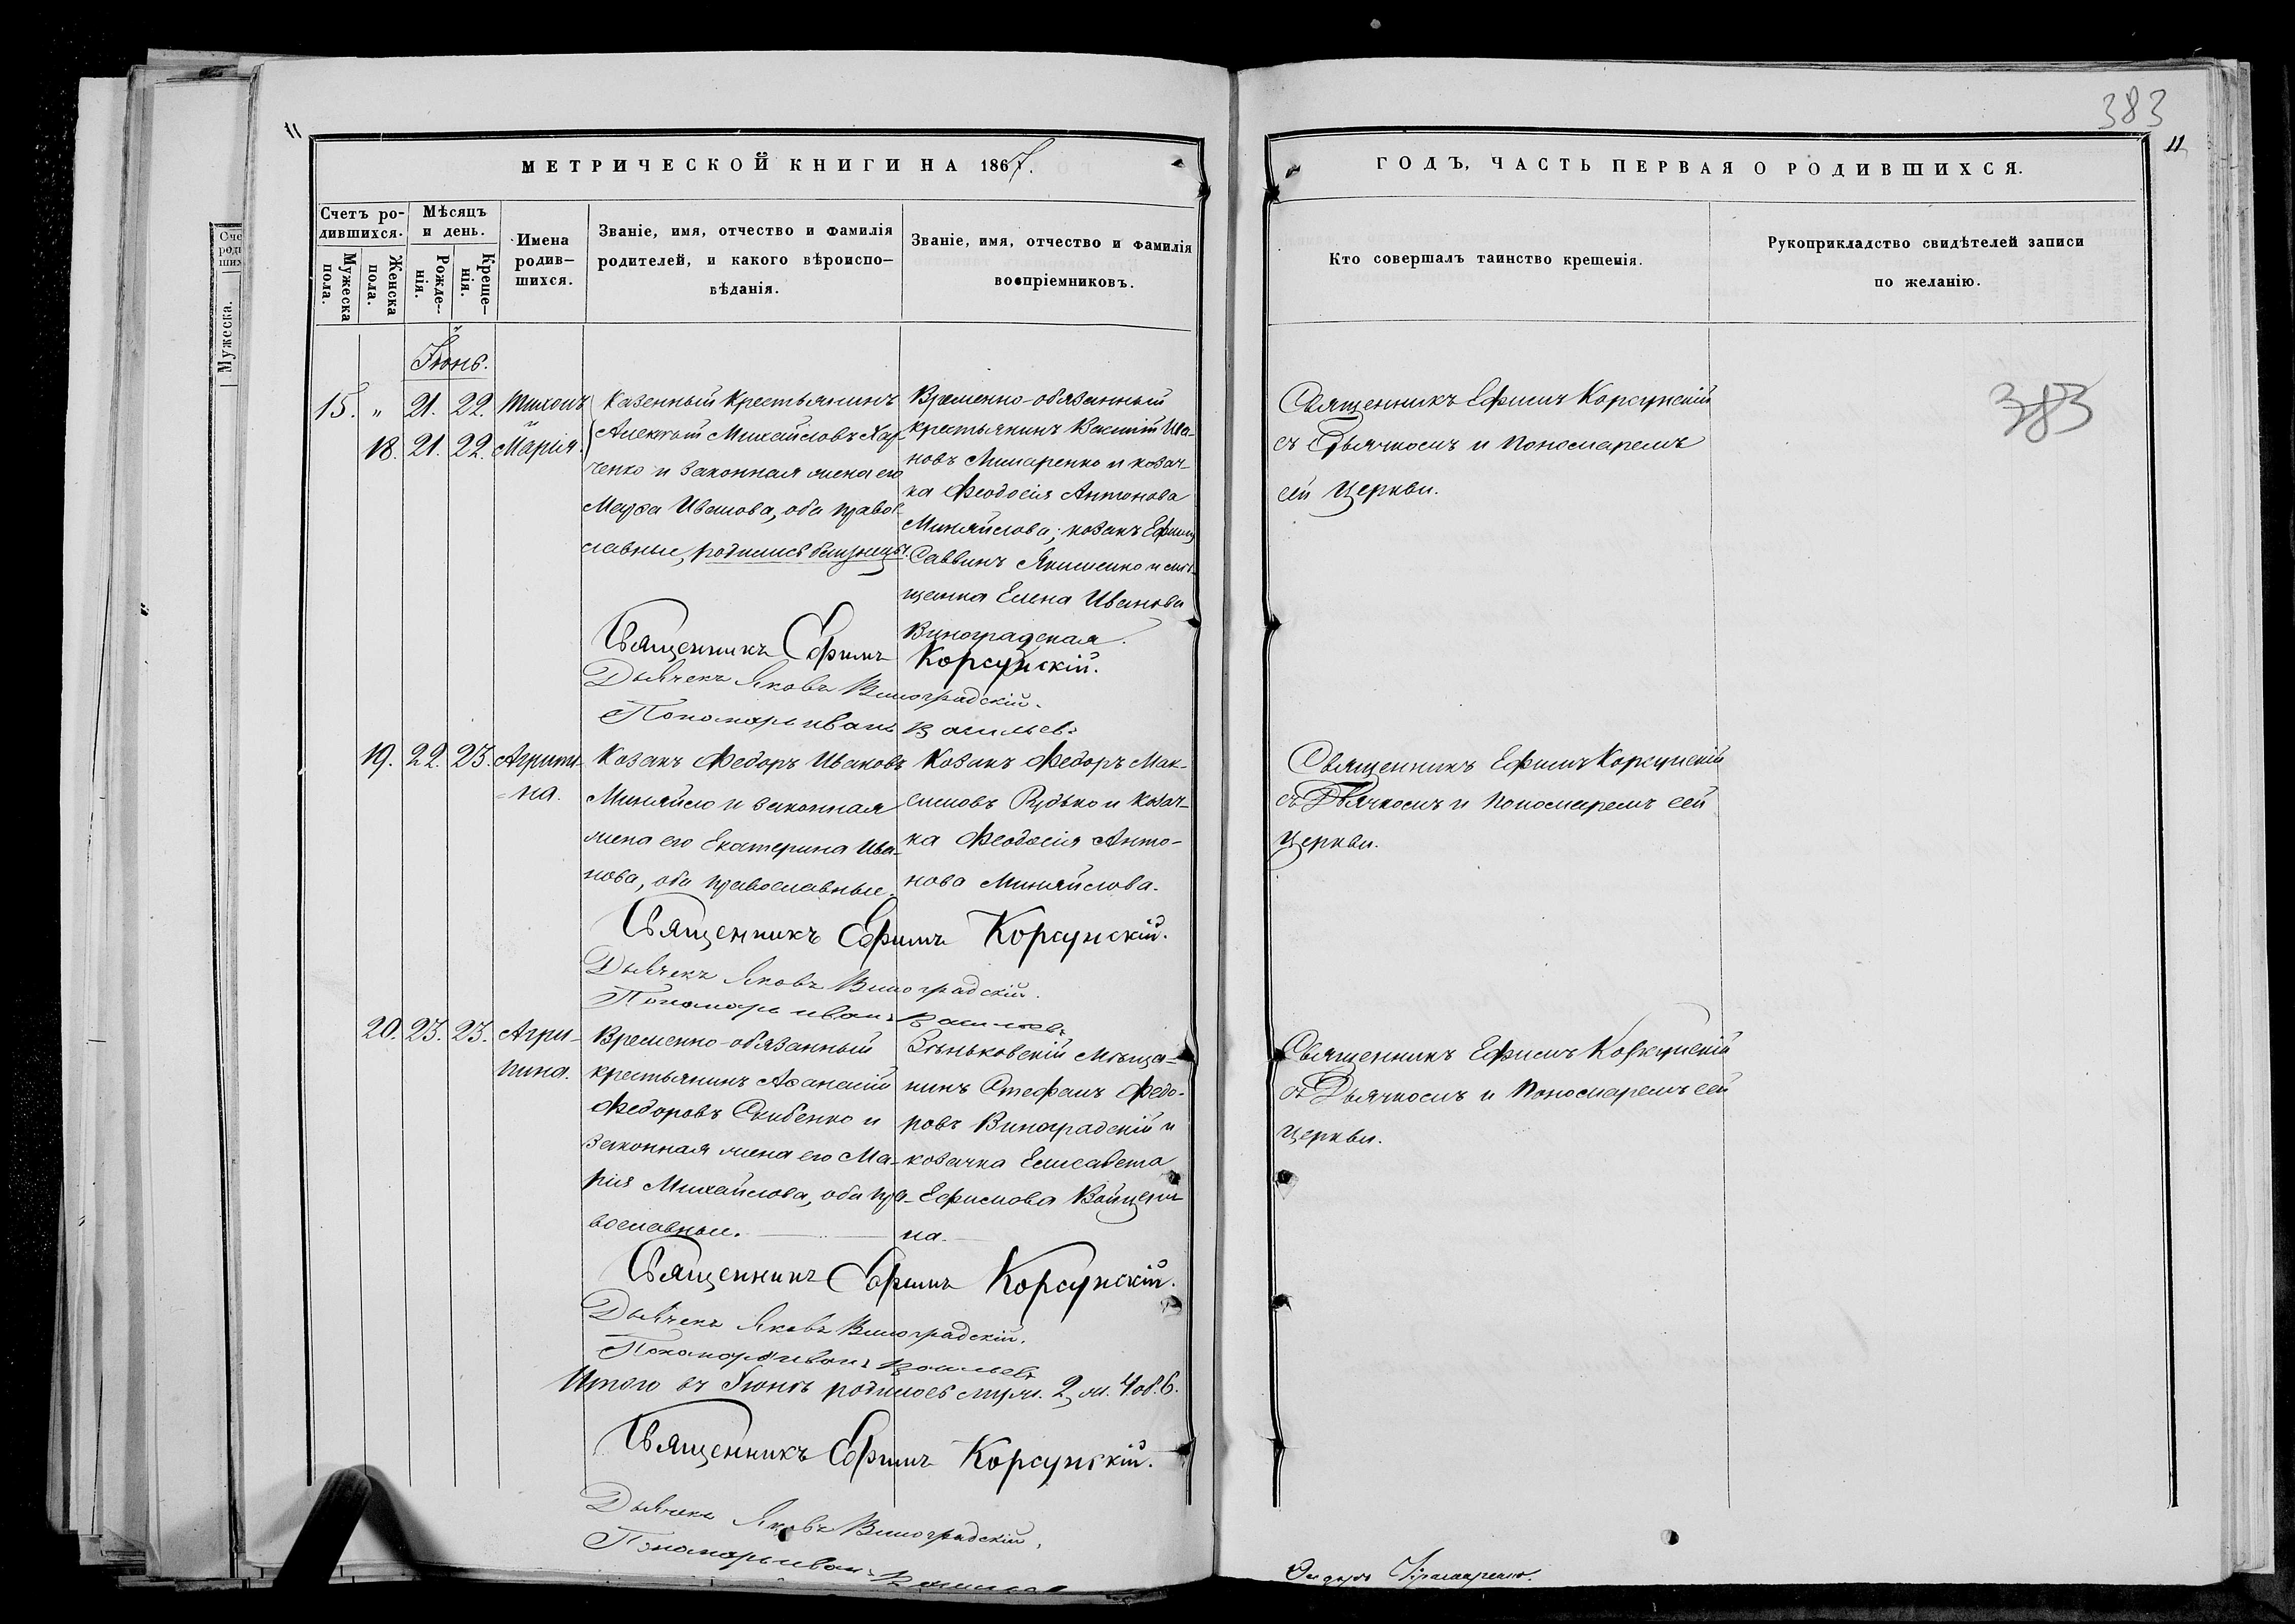 383
11
11
МЕТРИЧЕСКОЙ КНИГИ НА 1867.
ГОДЪ, ЧАСТЬ ПЕРВАЯ О РОДИВШИХСЯ.
Счетъ ро-
дившихся.
Мужеска
пола.
Женска
пола.
Мѣсяцъ
и день.
Рожде-
нія.
Креще-
нія.
Имена
родив-
шихся.
Званіе, имя, отчество и фамилія
родителей, и какого вѣроиспо-
вѣданія.
Званіе, имя, отчество и фамилія
воспріемниковъ.
Кто совершалъ таинство крещенія.
Рукоприкладство свидѣтелей записи
по желанію.
Мужеска.
Іюнь.
15. " 21. 22. Тихонъ
18. 21. 22. Марія.
Казенный крестьянинъ
Алексѣй Михайловъ Хар-
ченко и законная жена его
Марѳа Иванова, оба право-
славные, родились близнецы.
Временно-обязанный
крестьянинъ Василій Ива-
новъ Лимаренко и козач-
ка Феодосія Антонова
Миняйлова; козакъ Ефимъ
Саввинъ Якименко и мѣ-
щанка Елена Иванова
Виноградская.
Священникъ Ефимъ Корсунскій
съ Дьячкомъ и Пономаремъ
сей Церкви.
383
Священникъ Ефимъ Корсунскій.
Дьячекъ Яковъ Виноградскій.
Пономарь Иванъ Васильевъ
19. 22. 23. Агрипи-
на.
Козакъ Федоръ Ивановъ
Миняйло и законная
жена его Екатерина Ива-
нова, оба православные.
Козакъ Федоръ Мак-
симовъ Рудько и козач-
ка Феодосія Анто-
нова Миняйлова.
Священникъ Ефимъ Корсунскій
съ Дьячкомъ и Пономаремъ сей
Церкви.
Священникъ Ефимъ Корсунскій.
Дьячекъ Яковъ Виноградскій.
Пономарь Иванъ Васильевъ
20. 23. 23. Агри-
пина.
Временно-обязанный
крестьянинъ Аѳанасій
Федоровъ Скибенко и
законная жена его Ма-
рія Михайлова, оба пра-
вославные.
Зѣньковскій мѣща-
нинъ Стефанъ Федо-
ровъ Виноградскій и
козачка Елисавета
Ефимова
на.
Священникъ Ефимъ Корсунскій
съ Дьячкомъ и Пономаремъ сей
Церкви.
Священникъ Ефимъ Корсунскій.
Дьячекъ Яковъ Виноградскій.
Пономарь Иванъ Васильевъ
Итого въ Іюнѣ родилось муж. 2, ж. 4 об. 6.
Священникъ Ефимъ Корсунскій.
Дьячекъ Яковъ Виноградскій.
Пономарь Иванъ Васильевъ